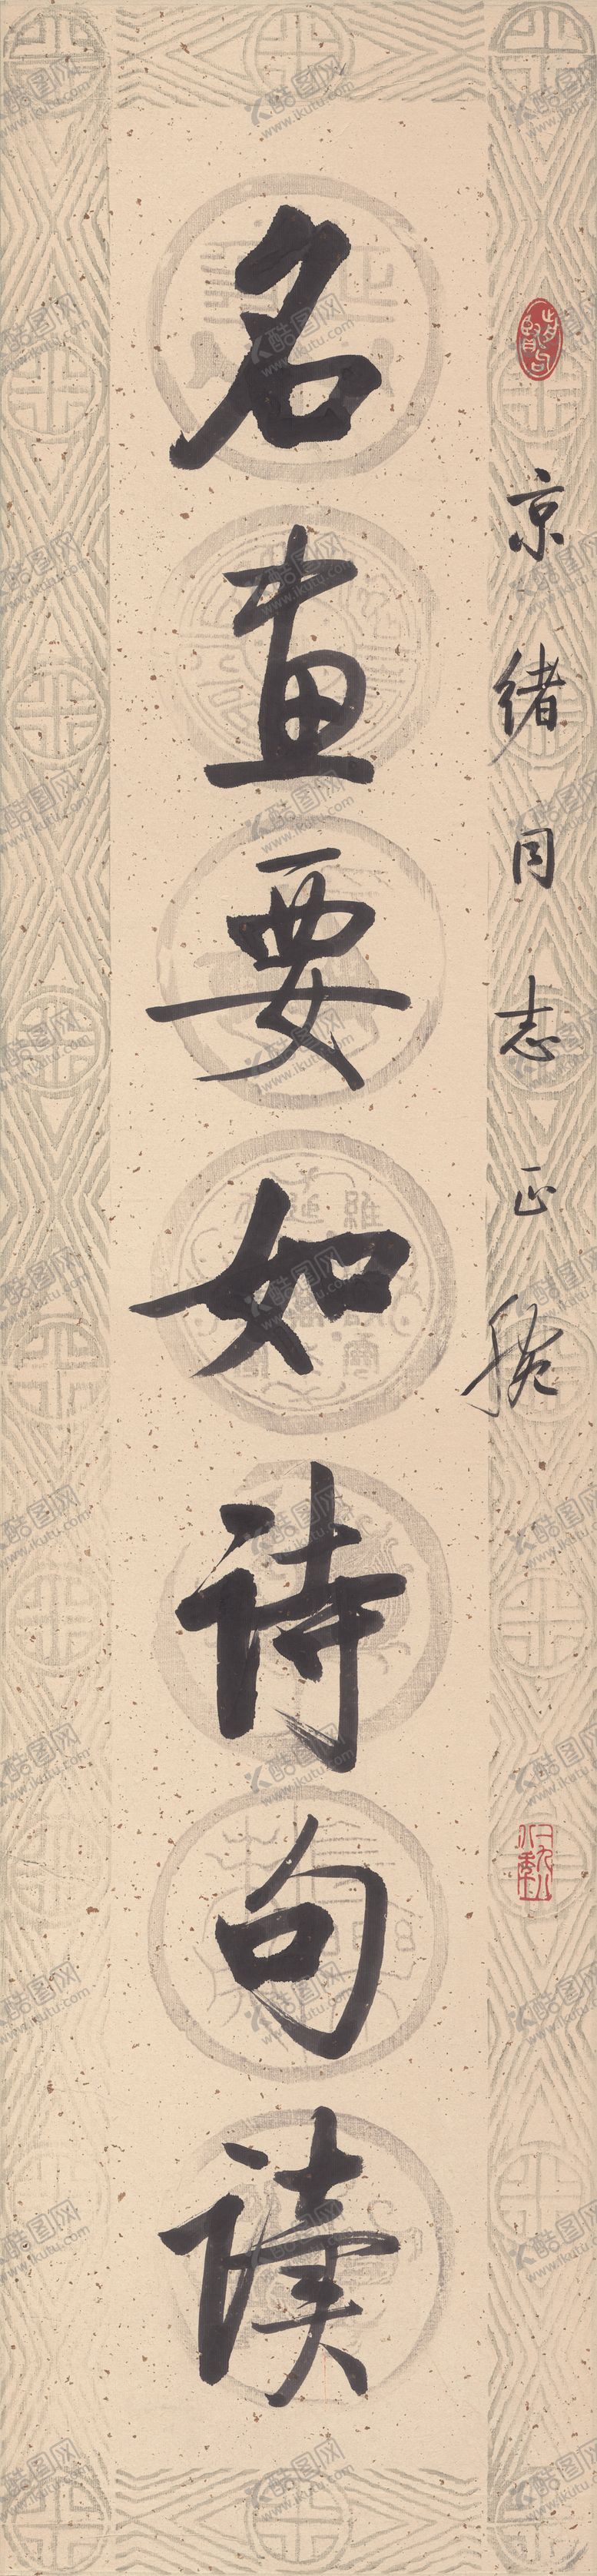 京绪同志正腕
名画要如诗句读
酷图网
www.ikutu.com